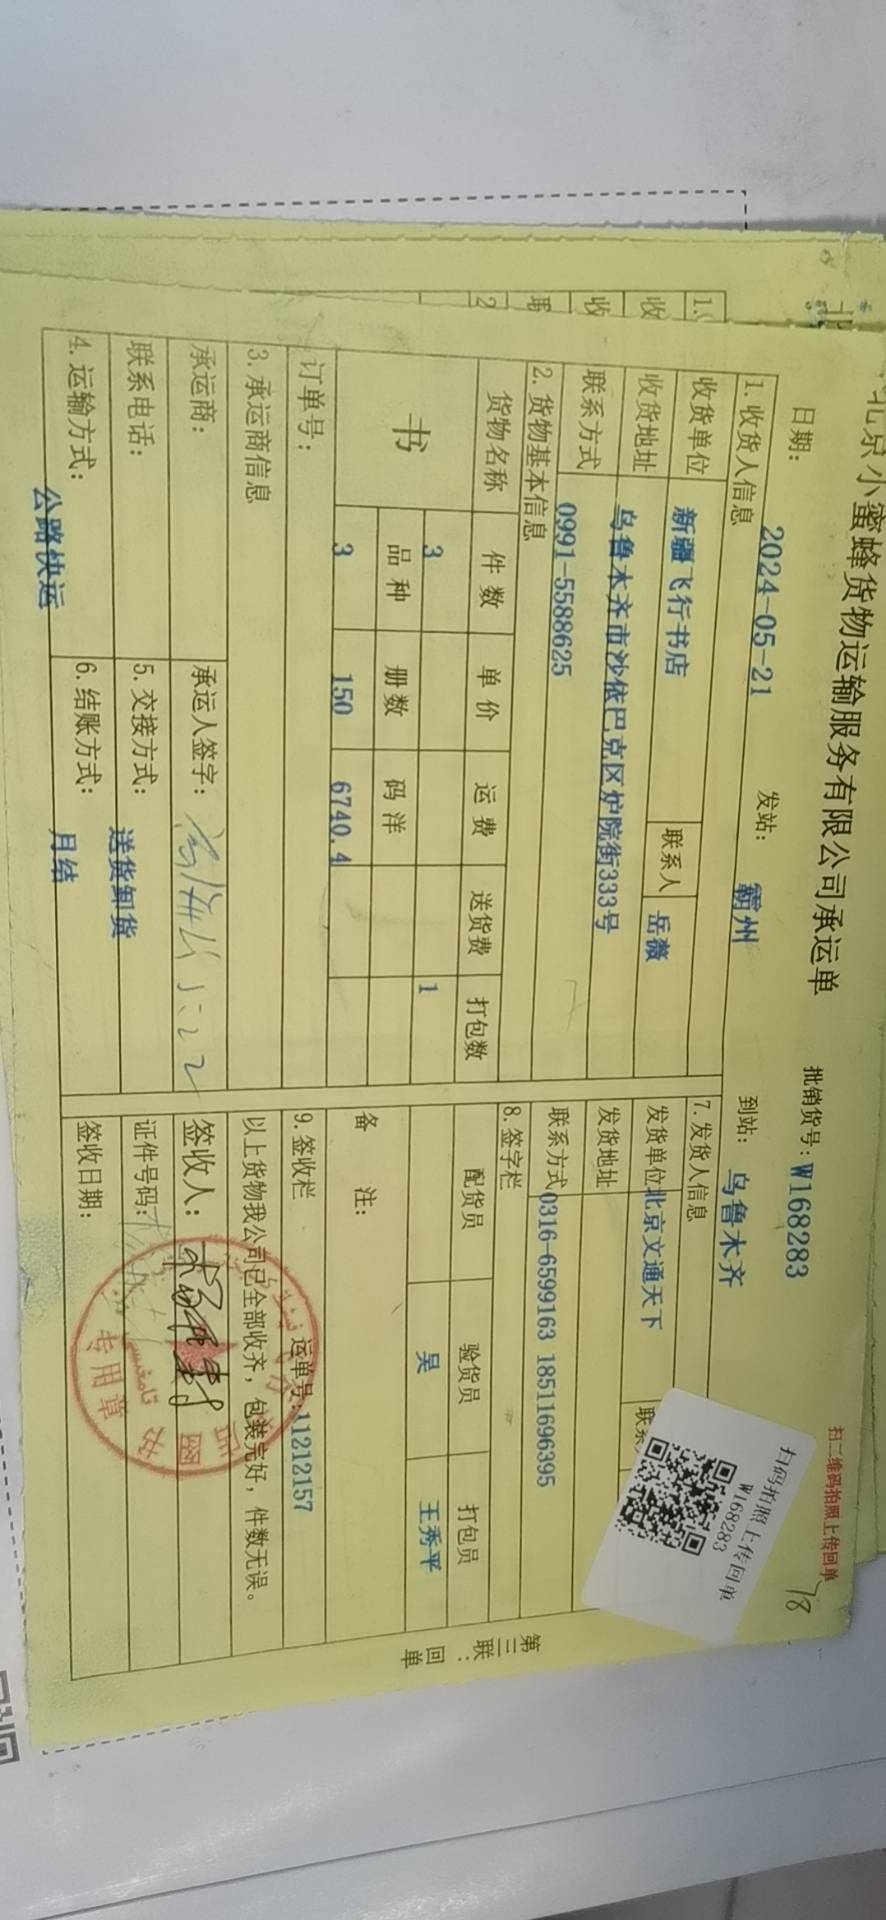 北京小蜜蜂货物运输服务有限公司承运单
扫二维码拍照上传回单
日期: 2024-05-21 发站: 霸州 到站: 乌鲁木齐 批销货号: W168283
18
扫码拍照上传回单
W168283
1. 收货人信息
收货单位 新疆飞行书店 联系人 岳薇
收货地址 乌鲁木齐市沙依巴克区炉院街333号
联系方式 0991-5588625
2. 货物基本信息
货物名称 件数 单价 运费 送货费 打包数
书 3 1
品种 册数 码洋
3 150 6740.4
订单号:
3. 承运商信息
承运商: 承运人签字:
联系电话: 5. 交接方式: 送货卸货
4. 运输方式: 公路快运 6. 结账方式: 月结
7. 发货人信息
发货单位 北京文通天下 联系
发货地址
联系方式 0316-6599163 18511696395
8. 签字栏
配货员 验货员 打包员
吴 王秀平
备注:
9. 签收栏 运单号: 11212157
以上货物我公司已全部收齐，包装完好，件数无误。
签收人:
证件号码:
签收日期:
图书
专用章
第三联: 回单